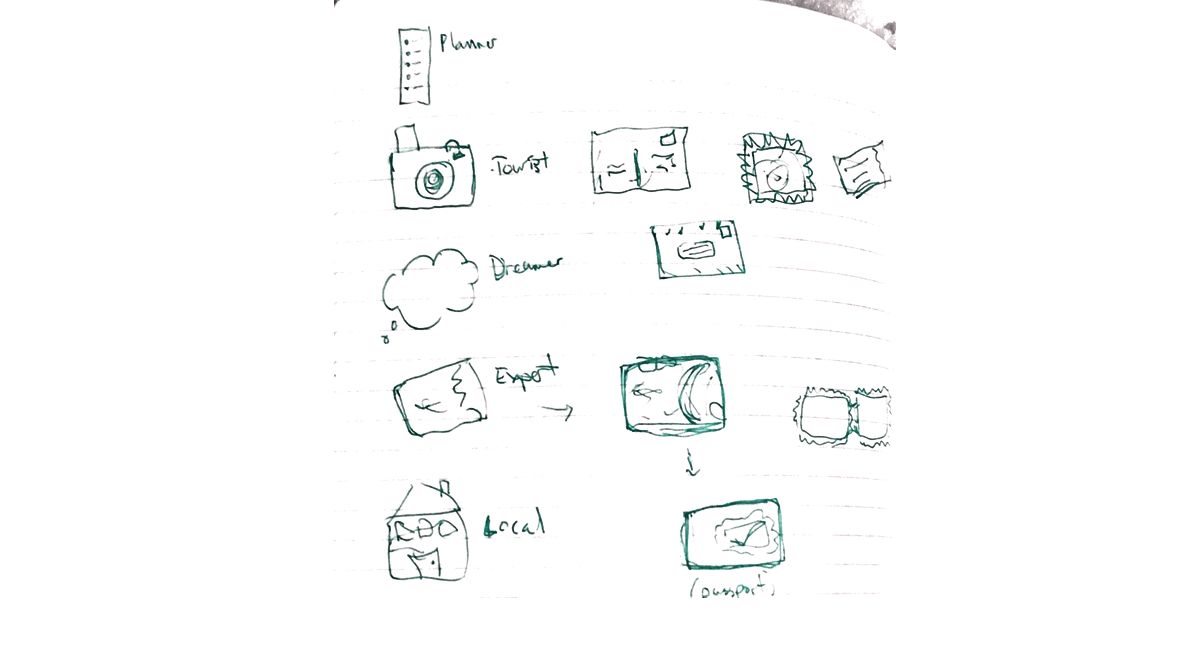 Planner
Tourist
Dreamer
Expert
Local
(passport)